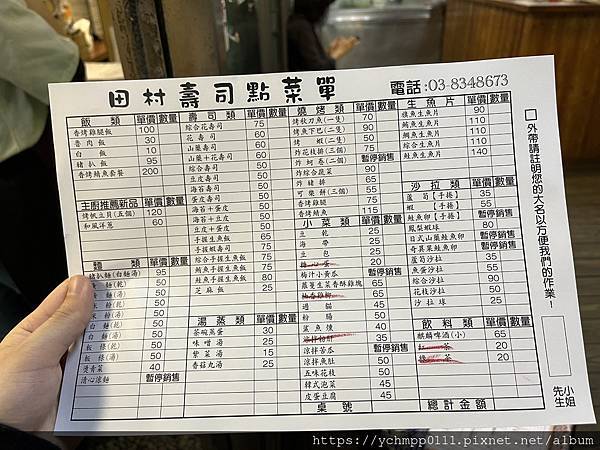 田村壽司點菜單
電話:03-8348673
飯類 單價 數量
香烤雞腿飯 100
魯肉飯 30
白飯 10
豬扒飯 95
香烤鯖魚套餐 200
主廚推薦新品 單價 數量
烤帆立貝(五個) 120
和風洋蔥 60
麵類 單價 數量
豬扒麵(白麵湯) 95
燙青菜 40
清心涼麵 暫停銷售
壽司類 單價 數量
綜合花壽司 75
花壽司 60
山藥壽司 60
山藥+花壽司 60
綜合壽司 50
豆皮壽司 50
海苔壽司 50
蛋壽司 50
海苔+蛋皮 50
海苔+豆皮 50
豆皮+蛋皮 50
手握生魚飯 50
手握蝦壽司 75
綜合手握生魚飯 75
鮪魚手握生魚飯 75
鮭魚手握生魚飯 80
芝麻飯 25
湯蒸類 單價 數量
茶碗蒸蛋 30
味噌湯 25
紫菜湯 15
香菇丸湯 25
燒烤類 單價 數量
烤秋刀魚(一隻) 70
烤魚下巴(二隻) 90
烤蝦(二隻) 50
炸花枝排(三個) 75
炸蚵卷(二個) 暫停銷售
炸綜合蔬菜 90
炸豬排 65
可樂餅(三個) 55
香烤鯖魚 115
小菜類 單價 數量
豆乾 25
海帶 25
豆包 25
糖心蛋 20
梅汁小黃瓜 25
蘿蔓生菜香酥雞塊 65
過貓 45
粉腸 50
鯊魚煙 40
涼拌粉肝 35
涼拌芋茄 50
涼拌魚肚 50
五味花枝 50
韓式泡菜 45
皮蛋豆腐 45
桌號
生魚片 單價 數量
旗魚生魚片 90
鮪魚生魚片 110
鯛魚生魚片 110
綜合生魚片 110
鮭魚生魚片 140
沙拉類 單價 數量
蘆筍【手捲】 35
蝦【手捲】 55
鮭魚卵【手捲】 暫停銷售
鳳梨蝦球 80
日式山藥鮭魚卵 暫停銷售
奇異果鮭魚卵 暫停銷售
蘆筍沙拉 35
魚蛋沙拉 55
綜合沙拉 90
花枝沙拉 50
沙拉球 25
飲料類 單價 數量
麒麟啤酒(小) 65
紅茶 20
綠茶 20
總計金額
外帶請註明您的大名以方便我們的作業!
小姐
先生
https://ychmpp0111.pixnet.net/album